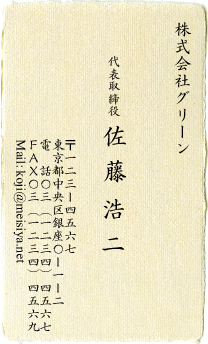 株式会社グリーン
代表取締役
佐藤浩二
〒一二三ー四五六七
東京都中央区銀座〇ー一ー二
電話〇三(一二三四)四五六七
FAX〇三(一二三四)四五六九
Mail: koji@meisiya.net